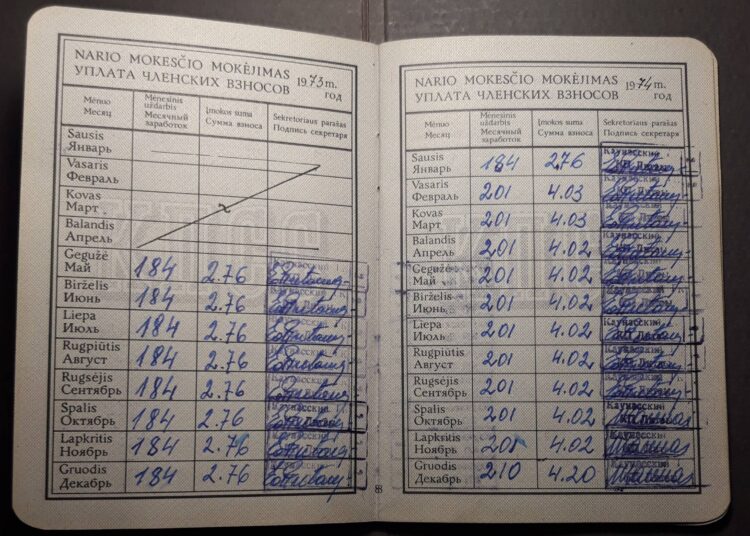 NARIO MOKESČIO MOKĖJIMAS
УПЛАТА ЧЛЕНСКИХ ВЗНОСОВ
1973 m.
год
Mėnuo
Месяц
Mėnesinis
uždarbis
Месячный
заработок
Įmokos suma
Сумма взноса
Sekretoriaus parašas
Подпись секретаря
Sausis
Январь
Vasaris
Февраль
Kovas
Март
Balandis
Апрель
Gegužė
Май 184 2.76
Birželis
Июнь 184 2.76
Liepa
Июль 184 2.76
Rugpiūtis
Август 184 2.76
Rugsėjis
Сентябрь 184 2.76
Spalis
Октябрь 184 2.76
Lapkritis
Ноябрь 184 2.76
Gruodis
Декабрь 184 2.76
NARIO MOKESČIO MOKĖJIMAS
УПЛАТА ЧЛЕНСКИХ ВЗНОСОВ
1974 m.
год
Mėnuo
Месяц
Mėnesinis
uždarbis
Месячный
заработок
Įmokos suma
Сумма взноса
Sekretoriaus parašas
Подпись секретаря
Sausis
Январь 184 2.76 Каунасский
Vasaris
Февраль 201 4.03
Kovas
Март 201 4.03
Balandis
Апрель 201 4.02 Каунасский
Gegužė
Май 201 4.02
Birželis
Июнь 201 4.02
Liepa
Июль 201 4.02 Каунасский
Rugpiūtis
Август 201 4.02
Rugsėjis
Сентябрь 201 4.02
Spalis
Октябрь 201 4.02 Каунасский
Lapkritis
Ноябрь 201 4.02
Gruodis
Декабрь 210 4.20